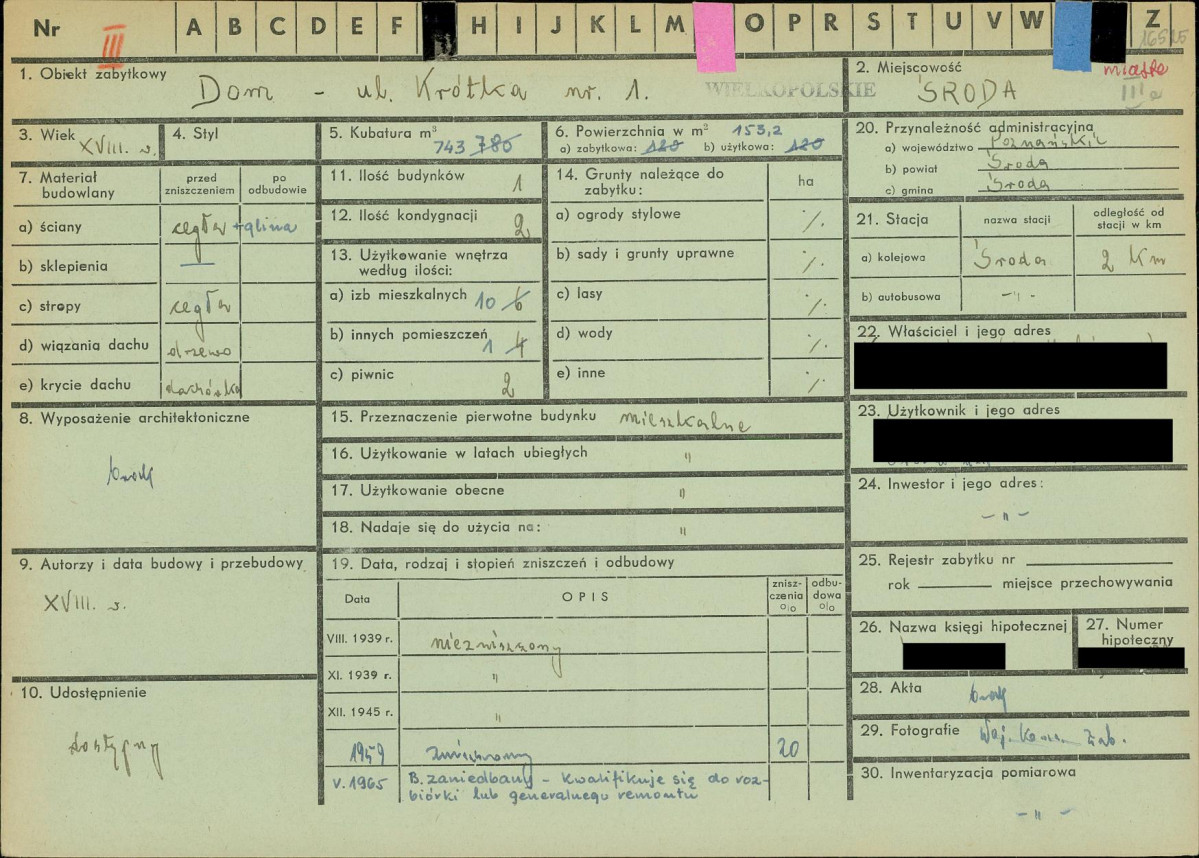 Nr III A B C D E F H I J K L M O P R S T U V W Z
16525
1. Obiekt zabytkowy
Dom - ul. Krótka nr. 1.
WIELKOPOLSKIE
2. Miejscowość
miasto
III a
ŚRODA
3. Wiek
XVIII. w.
4. Styl
5. Kubatura m³
743 786
6. Powierzchnia w m² 153,2
a) zabytkowa: 120 b) użytkowa: 120
7. Materiał budowlany
przed zniszczeniem
po odbudowie
a) ściany cegła + glina
b) sklepienia —
c) stropy cegła
d) wiązania dachu drzewo
e) krycie dachu dachówka
8. Wyposażenie architektoniczne
brak
9. Autorzy i data budowy i przebudowy
XVIII. w.
10. Udostępnienie
dostępny
11. Ilość budynków 1
12. Ilość kondygnacji 2
13. Użytkowanie wnętrza
według ilości:
a) izb mieszkalnych 10 6
b) innych pomieszczeń 1 4
c) piwnic 2
14. Grunty należące do
zabytku:
ha
a) ogrody stylowe ./.
b) sady i grunty uprawne ./.
c) lasy ./.
d) wody ./.
e) inne ./.
15. Przeznaczenie pierwotne budynku mieszkalne
16. Użytkowanie w latach ubiegłych "
17. Użytkowanie obecne "
18. Nadaje się do użycia na: "
19. Data, rodzaj i stopień zniszczeń i odbudowy
Data
OPIS
znisz-
czenia
o/o
odbu-
dowa
o/o
VIII. 1939 r. niezniszczony
XI. 1939 r. "
XII. 1945 r. "
1959 zniszczony 20
V. 1965 B. zaniedbany - kwalifikuje się do roz-
biórki lub generalnego remontu
20. Przynależność administracyjna
a) województwo Poznański
b) powiat Środa
c) gmina Środa
21. Stacja
nazwa stacji
odległość od
stacji w km
a) kolejowa Środa 2 Km
b) autobusowa -"-
22. Właściciel i jego adres
23. Użytkownik i jego adres
24. Inwestor i jego adres:
-"-
25. Rejestr zabytku nr
rok miejsce przechowywania
26. Nazwa księgi hipotecznej
27. Numer
hipoteczny
28. Akta
brak
29. Fotografie Woj. Kons. Zab.
30. Inwentaryzacja pomiarowa
-"-